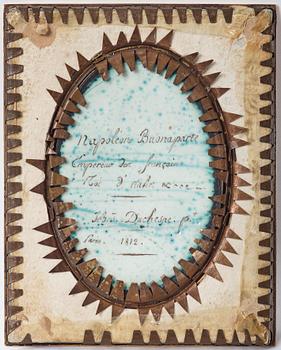 Napoléon Buonaparte
Empereur des français
Roi d'italie &c
Duchesne
Paris. 1812.